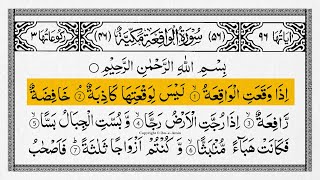 اٰیَاتُهَا ۹۶ (۵۶) سُوْرَةُ الْوَاقِعَةِ مَكِّیَّةٌ (۴۶) رُكُوْعَاتُهَا ۳
بِسْمِ اللّٰهِ الرَّحْمٰنِ الرَّحِیْمِ
اِذَا وَقَعَتِ الْوَاقِعَةُ ۙ﴿۱﴾ لَیْسَ لِوَقْعَتِهَا كَاذِبَةٌ ۘ﴿۲﴾ خَافِضَةٌ
رَّافِعَةٌ ۙ﴿۳﴾ اِذَا رُجَّتِ الْاَرْضُ رَجًّا ۙ﴿۴﴾ وَّ بُسَّتِ الْجِبَالُ بَسًّا ۙ﴿۵﴾
فَكَانَتْ هَبَآءً مُّنْۢبَثًّا ۙ﴿۶﴾ وَّ كُنْتُمْ اَزْوَاجًا ثَلٰثَةً ؕ﴿۷﴾ فَاَصْحٰبُ